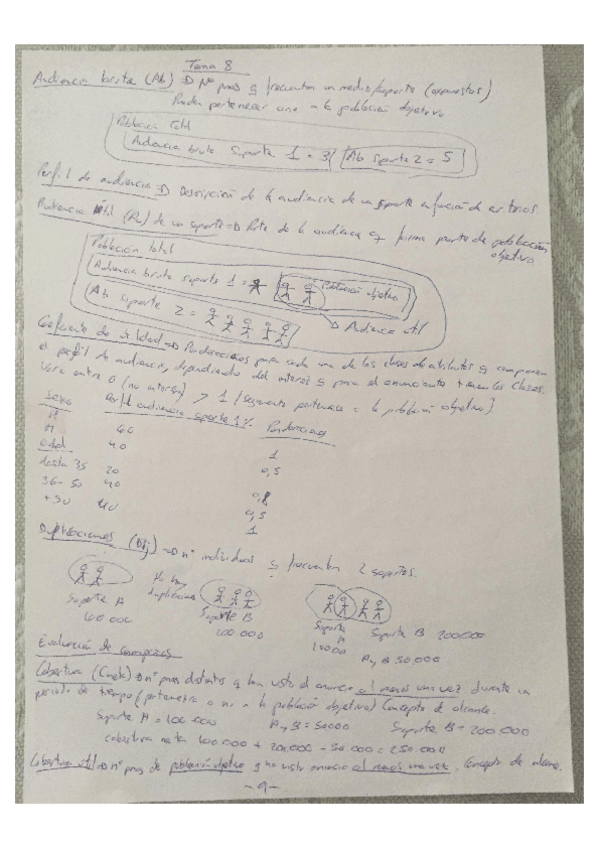 Tema 8
Audiencia bruta (Ab) ⇒ Nº pnas q frecuentan un medio/soporte (expuestos)
Pueden pertenecer o no a la población objetivo
Población total
Audiencia bruta soporte 1 = 3 Ab soporte 2 = 5
Perfil de audiencia ⇒ Descripción de la audiencia de un soporte en función de criterios
Audiencia útil (Au) de un soporte ⇒ Parte de la audiencia q forma parte de población
objetivo
Población total
Audiencia bruta soporte 1 = Población objetivo
Ab soporte 2 =
→ Audiencia útil
Coeficiente de utilidad ⇒ Ponderaciones para cada una de las clases de atributos q componen
el perfil de audiencia, dependiendo del interés q para el anunciante tienen las clases.
Varía entre 0 (no interés) > 1 (segmento pertenece a la población objetivo)
Sexo Perfil audiencia soporte 1 % Ponderaciones
H 60 1
M 40 0,5
edad
hasta 35 20 0,8
36-50 40 0,5
+50 40 1
Duplicaciones (Dij) ⇒ nº individuos q frecuentan 2 soportes.
No hay
duplicaciones
Soporte A Soporte B Soporte A Soporte B 200.000
100.000 200.000 100.000
A y B 50.000
Evaluación de campañas
Cobertura (Cneta) ⇒ nº pnas distintas q han visto el anuncio al menos una vez durante un
periodo de tiempo (pertenezca o no a la población objetivo) Concepto de alcance.
Soporte A = 100.000 A y B = 50000 Soporte B = 200.000
cobertura neta 100.000 + 200.000 - 50.000 = 250.000
Cobertura útil ⇒ nº pnas de población objetivo q ha visto anuncio al menos una vez. Concepto de alcance.
-9-